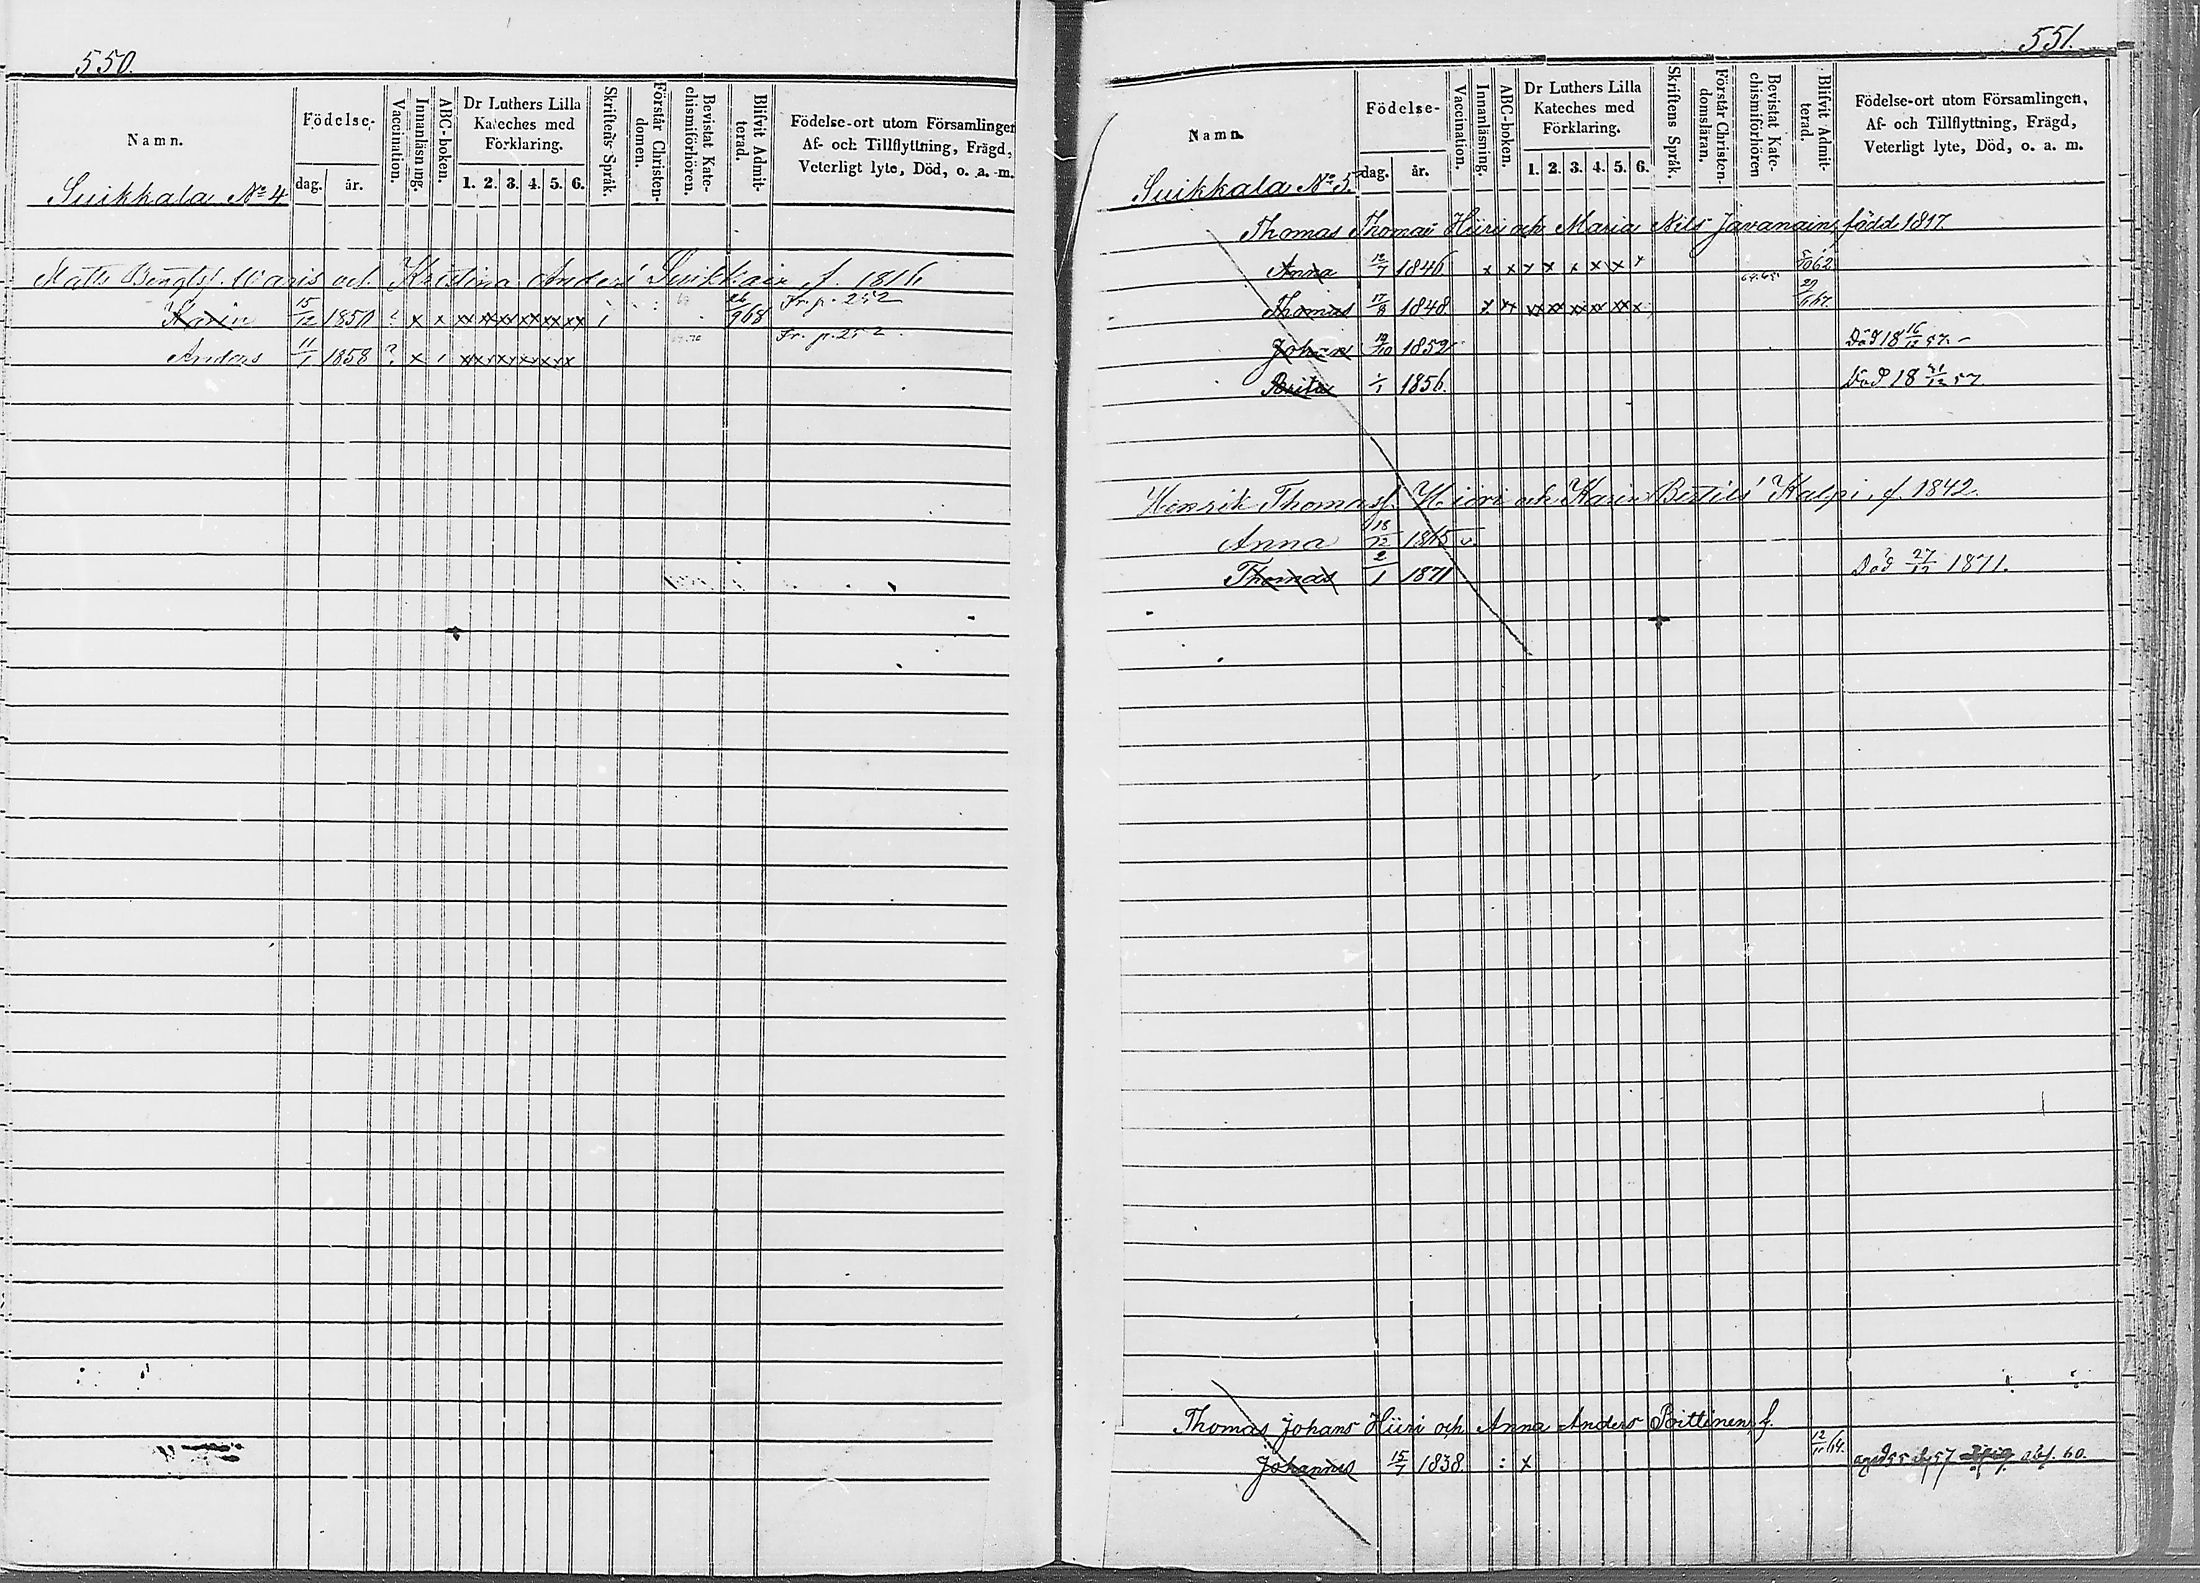 550.
Namn.
Födelse-
dag. år.
Vaccination.
Innanläsning.
ABC-boken.
Dr Luthers Lilla Kateches med Förklaring.
1. 2. 3. 4. 5. 6.
Skriftens Språk.
Förstår Christendomen.
Bevistat Katechismiförhören.
Blifvit Admitterad.
Födelse-ort utom Församlingen,
Af- och Tillflyttning, Frägd,
Veterligt lyte, Död, o. a. m.
Suikkala No 4
Matts Bengtsf. och Kristina Anders f. 1816
Karin 15/12 1850 ? x x xx xx xx xx xx xx 1 26/9 68 Fr. p. 252
Anders 11/1 1858 ? x 1 Fr. p. 252
551.
Namn.
Födelse-
dag. år.
Vaccination.
Innanläsning.
ABC-boken.
Dr Luthers Lilla Kateches med Förklaring.
1. 2. 3. 4. 5. 6.
Skriftens Språk.
Förstår Christendomsläran.
Bevistat Katechismiförhören
Blifvit Admitterad.
Födelse-ort utom Församlingen,
Af- och Tillflyttning, Frägd,
Veterligt lyte, Död, o. a. m.
Suikkala No 5.
Thomas Thomas Hiiri och Maria Nils Javanain, född 1817.
Anna 12/7 1846 x x x x x x x x 62
Thomas 17/8 1848 29/6 67.
Johan 1852 Död 18 16/12 57.
Brita 1/1 1856. Död 18 31/12 57
Henrik Thomasf. Hiiri och Karin Bertils Kalpi. f. 1842.
Anna 18/12 1865 v.
Thomas 2/1 1871 Död 27/12 1871.
Thomas Johans Hiiri och Anna Anders Poittinen, f.
Johannes 15/7 1838. : x 64. abs. 60.